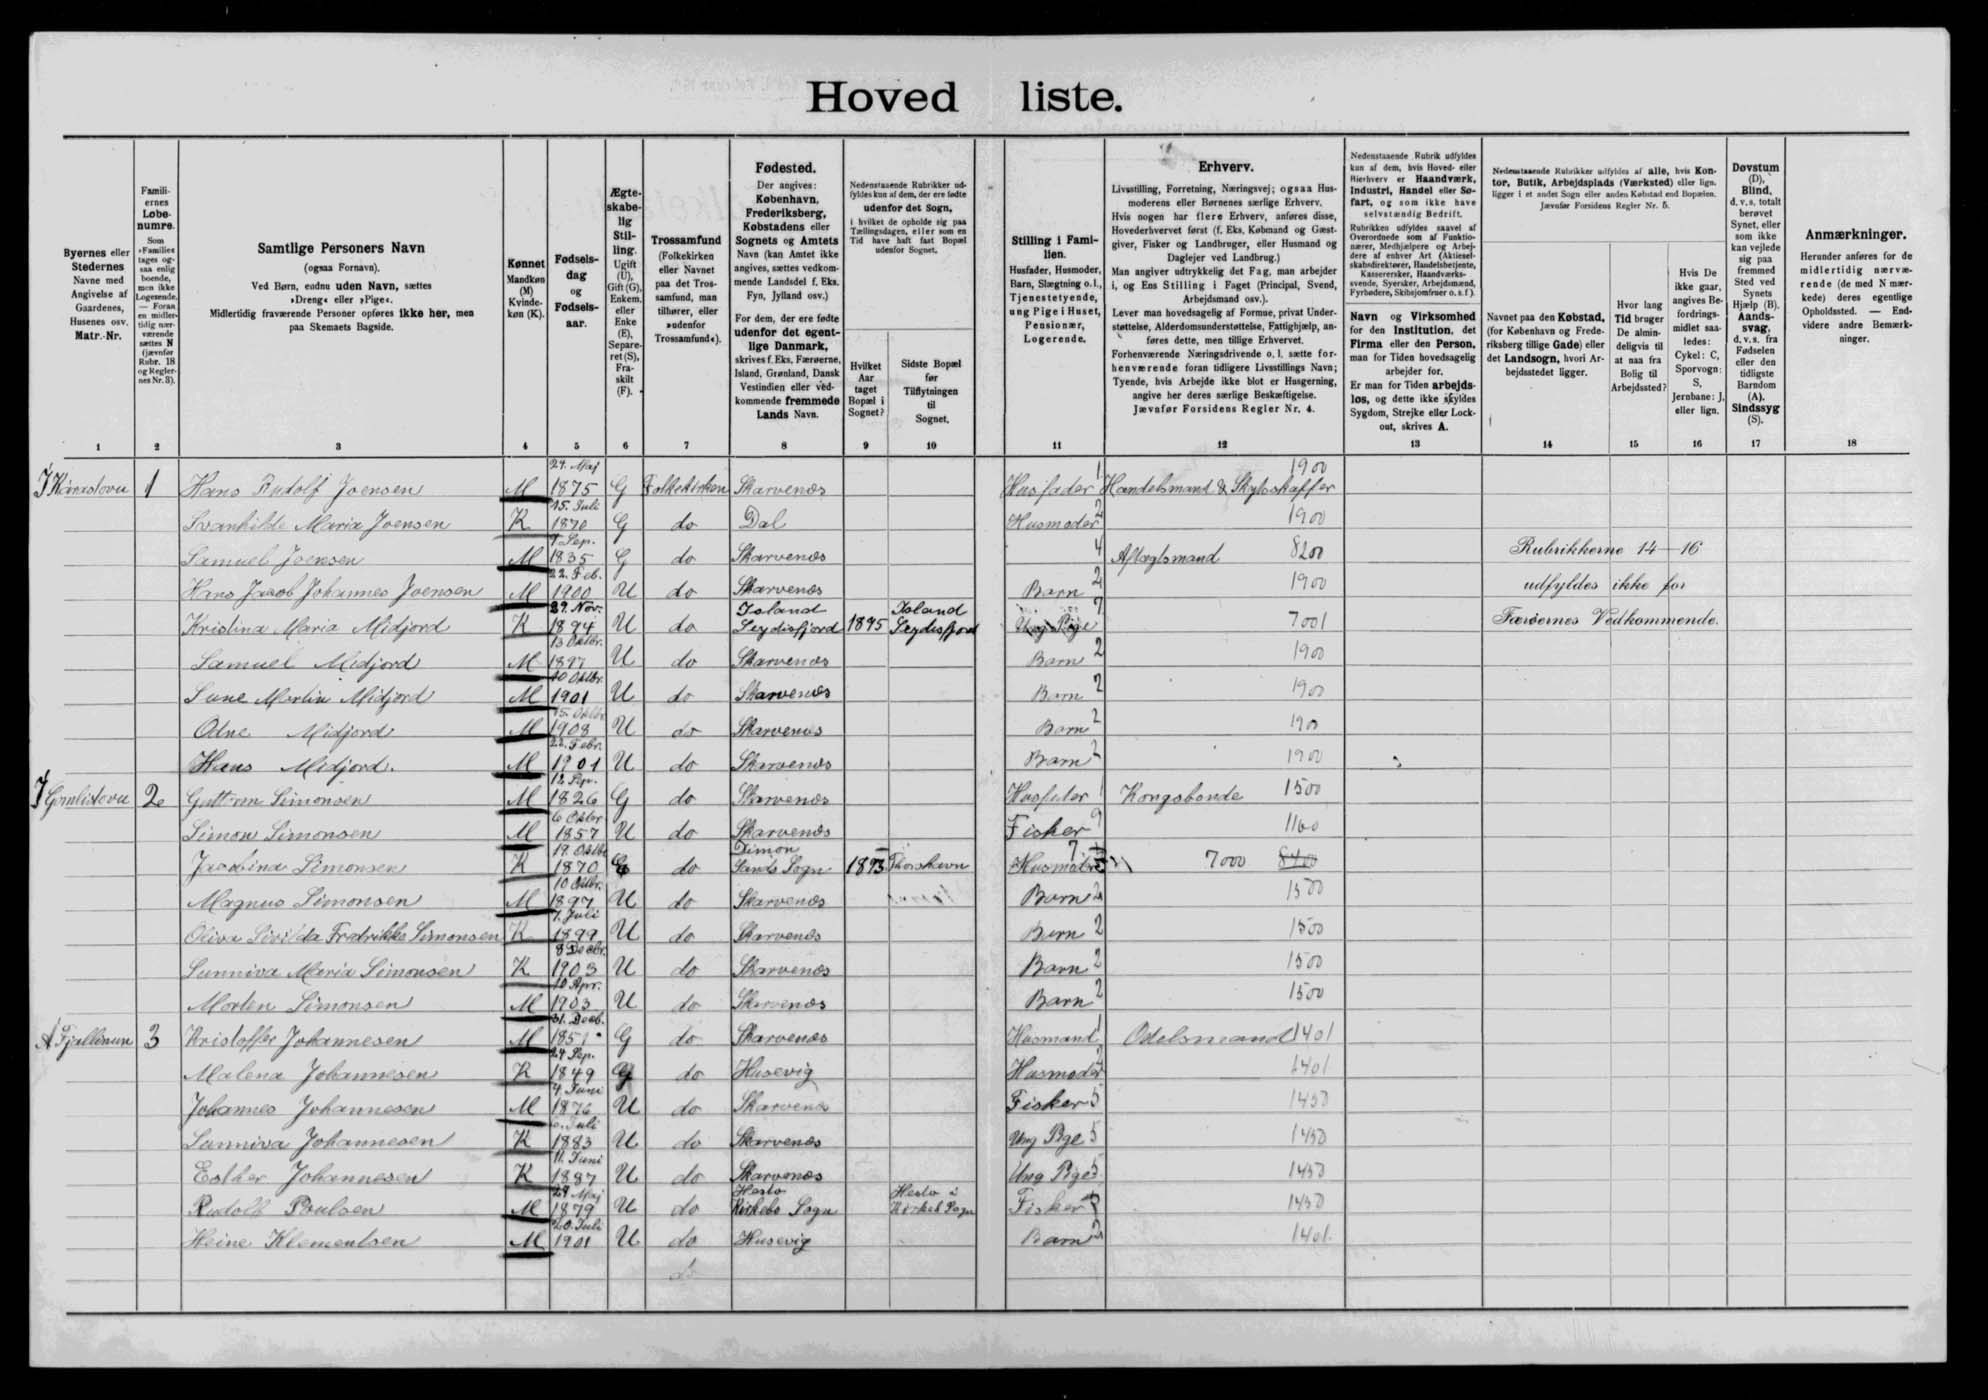 Hoved liste.
Byernes eller Stedernes Navne med Angivelse af Gaardenes, Husenes osv. Matr.-Nr.
Familiernes Løbenumre.
Som »Familie« tages ogsaa enlig boende, men ikke Logerende. — Foran en midlertidig nærværende sættes N (jævnfør Rubr. 18 og Reglernes Nr. 3).
Samtlige Personers Navn
(ogsaa Fornavn).
Ved Børn, endnu uden Navn, sættes »Dreng« eller »Pige«.
Midlertidig fraværende Personer opføres ikke her, men paa Skemaets Bagside.
Kønnet
Mandkøn (M) Kvindekøn (K).
Fødselsdag og Fødselsaar.
Ægteskabelig Stilling.
Ugift (U), Gift (G), Enkem. eller Enke (E), Separeret (S), Fraskilt (F).
Trossamfund
(Folkekirken eller Navnet paa det Trossamfund, man tilhører, eller »udenfor Trossamfund«).
Fødested.
Der angives:
København, Frederiksberg, Købstadens eller Sognets og Amtets Navn (kan Amtet ikke angives, sættes vedkommende Landsdel f. Eks. Fyn, Jylland osv.)
For dem, der ere fødte udenfor det egentlige Danmark, skrives f. Eks. Færøerne, Island, Grønland, Dansk Vestindien eller vedkommende fremmede Lands Navn.
Nedenstaaende Rubrikker udfyldes kun af dem, der ere fødte udenfor det Sogn, i hvilket de opholde sig paa Tællingsdagen, eller som en Tid have haft fast Bopæl udenfor Sognet.
Hvilket Aar taget Bopæl i Sognet?
Sidste Bopæl før Tilflytningen til Sognet.
Stilling i Familien.
Husfader, Husmoder, Barn, Slægtning o.l., Tjenestetyende, ung Pige i Huset, Pensionær, Logerende.
Erhverv.
Livsstilling, Forretning, Næringsvej; ogsaa Husmoderens eller Børnenes særlige Erhverv.
Hvis nogen har flere Erhverv, anføres disse, Hovederhvervet først (f. Eks. Købmand og Gæstgiver, Fisker og Landbruger, eller Husmand og Daglejer ved Landbrug.)
Man angiver udtrykkelig det Fag, man arbejder i, og Ens Stilling i Faget (Principal, Svend, Arbejdsmand osv.).
Lever man hovedsagelig af Formue, privat Understøttelse, Alderdomsunderstøttelse, Fattighjælp, anføres dette, men tillige Erhvervet.
Forhenværende Næringsdrivende o. l. sætte forhenværende foran tidligere Livsstillings Navn;
Tyende, hvis Arbejde ikke blot er Husgerning, angive her deres særlige Beskæftigelse.
Jævnfør Forsidens Regler Nr. 4.
Nedenstaaende Rubrik udfyldes kun af dem, hvis Hoved- eller Bierhverv er Haandværk, Industri, Handel eller Søfart, og som ikke have selvstændig Bedrift.
Rubrikken udfyldes saavel af Overordnede som af Funktionærer, Medhjælpere og Arbejdere af enhver Art (Aktieselskabsdirektører, Handelsbetjente, Kasserersker, Haandværkssvende, Syersker, Arbejdsmænd, Fyrbødere, Skibsjomfruer o. s. f.).
Navn og Virksomhed for den Institution, det Firma eller den Person, man for Tiden hovedsagelig arbejder for.
Er man for Tiden arbejdsløs, og dette ikke skyldes Sygdom, Strejke eller Lockout, skrives A.
Nedenstaaende Rubrikker udfyldes af alle, hvis Kontor, Butik, Arbejdsplads (Værksted) eller lign. ligger i et andet Sogn eller anden Købstad end Bopælen.
Jævnfør Forsidens Regler Nr. 5.
Navnet paa den Købstad, (for København og Frederiksberg tillige Gade) eller det Landsogn, hvori Arbejdsstedet ligger.
Hvor lang Tid bruger De almindeligvis til at naa fra Bolig til Arbejdssted?
Hvis De ikke gaar, angives Befordringsmidlet saaledes: Cykel: C, Sporvogn: S, Jernbane: J, eller lign.
Døvstum (D), Blind, d. v. s. totalt berøvet Synet, eller som ikke kan vejlede sig paa fremmed Sted ved Synets Hjælp (B). Aandssvag, d. v. s. fra Fødselen eller den tidligste Barndom (A). Sindssyg (S).
Anmærkninger.
Herunder anføres for de midlertidig nærværende (de med N mærkede) deres egentlige Opholdssted. — Endvidere andre Bemærkninger.
1 2 3 4 5 6 7 8 9 10 11 12 13 14 15 16 17 18
1 Hans Rudolf Joensen M 24. Maj 1875 G Folkekirken Skarvenæs Husfader 1 Handelsmand & Skydsskaffer 1900
Svanhilde Maria Joensen K 15. Juli 1870 G do Dal Husmoder 2 1900
Samuel Joensen M 7 Sep. 1835 G do Skarvenæs 4 Aftægtsmand 8200
Rubrikkerne 14—16
Hans Jacob Johannes Joensen M 22. Feb. 1900 U do Skarvenæs Barn 2 1900
udfyldes ikke for
Kristina Maria Midjord K 29. Nov. 1894 U do Island Seydisfjord 1895 Island Seydisfjord Ung Pige 7 7001
Færøernes Vedkommende.
Samuel Midjord M 13 Oktbr. 1897 U do Skarvenæs Barn 2 1900
Sune Martin Midjord M 10 Oktbr. 1901 U do Skarvenæs Barn 2 1900
Odne Midjord M 15. Oktbr 1908 U do Skarvenæs Barn 2 1900
Hans Midjord. M 22. Febr. 1901 U do Skarvenæs Barn 2 1900
2 Guttorm Simonsen M 12 Sep. 1826 G do Skarvenæs Husfader 1 Kongsbonde 1500
Simon Simonsen M 6 Oktbr 1857 U do Skarvenæs Fisker 9 1160
Jacobina Simonsen K 19. Oktbr 1870 G do Dimon Sands Sogn 1893 Thorshavn Husmoder 7 7000 8400
Magnus Simonsen M 10 Oktbr. 1897 U do Skarvenæs Barn 2 1500
Oliva Sivilda Fredrikke Simonsen K 7. Juli 1899 U do Skarvenæs Barn 2 1500
Sunniva Maria Simonsen K 8 Decbr. 1903 U do Skarvenæs Barn 2 1500
Morten Simonsen M 10 Apr. 1903 U do Skarvenæs Barn 2 1500
3 Kristoffer Johannesen M 31. Decb. 1851 G do Skarvenæs Husmand 1 Odelsmand 1401
Malena Johannesen K 24 Sep. 1849 G do Husevig Husmoder 2 1401
Johannes Johannesen M 4 Juni 1876 U do Skarvenæs Fisker 5 1450
Sunniva Johannesen K Juli 1883 U do Skarvenæs Ung Pge 5 1450
Esther Johannesen K 11. Juni 1887 U do Skarvenæs Ung Pge 5 1450
Rudolf Poulsen M 29 Maj 1879 U do Hesto Kirkebo Sogn Hesto i Kirkeb Sogn Fisker 1450
Heine Klementsen M 20. Juli 1901 U do Husevig Barn 2 1401
do